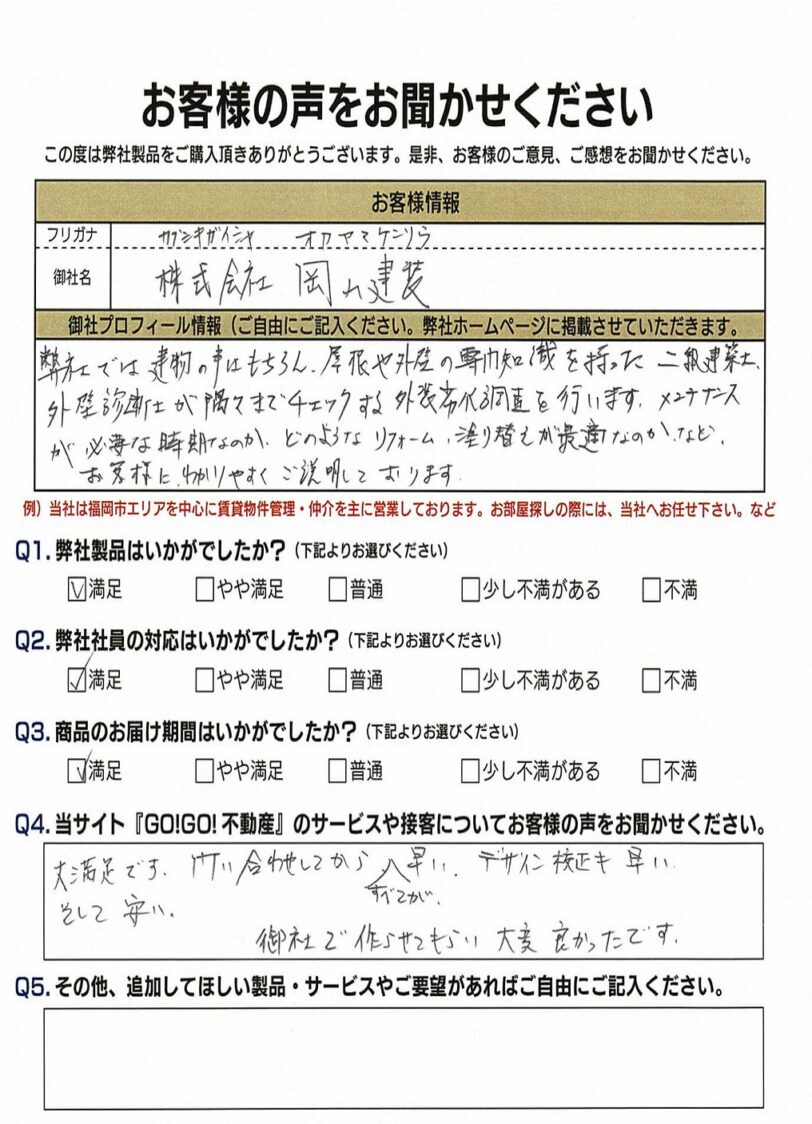 お客様の声をお聞かせください
この度は弊社製品をご購入頂きありがとうございます。是非、お客様のご意見、ご感想をお聞かせください。
お客様情報
フリガナ カブシキガイシャ オカヤマケンソウ
御社名 株式会社 岡山建装
御社プロフィール情報（ご自由にご記入ください。弊社ホームページに掲載させていただきます。
弊社では建物の事はもちろん、屋根や外壁の専門知識を持った二級建築士、
外壁診断士が隅々までチェックする外装劣化調査を行います。メンテナンス
が必要な時期なのか、どのようなリフォーム、塗り替えが最適なのか、など、
お客様にわかりやすくご説明しております。
例）当社は福岡市エリアを中心に賃貸物件管理・仲介を主に営業しております。お部屋探しの際には、当社へお任せ下さい。など
Q1. 弊社製品はいかがでしたか？（下記よりお選びください）
☑満足 □やや満足 □普通 □少し不満がある □不満
Q2. 弊社社員の対応はいかがでしたか？（下記よりお選びください）
☑満足 □やや満足 □普通 □少し不満がある □不満
Q3. 商品のお届け期間はいかがでしたか？（下記よりお選びください）
☑満足 □やや満足 □普通 □少し不満がある □不満
Q4. 当サイト『GO!GO! 不動産』のサービスや接客についてお客様の声をお聞かせください。
大満足です。問い合わせしてからすべてが、早い。デザイン校正も早い。
そして安い。
御社で作らせてもらい大変良かったです。
Q5. その他、追加してほしい製品・サービスやご要望があればご自由にご記入ください。